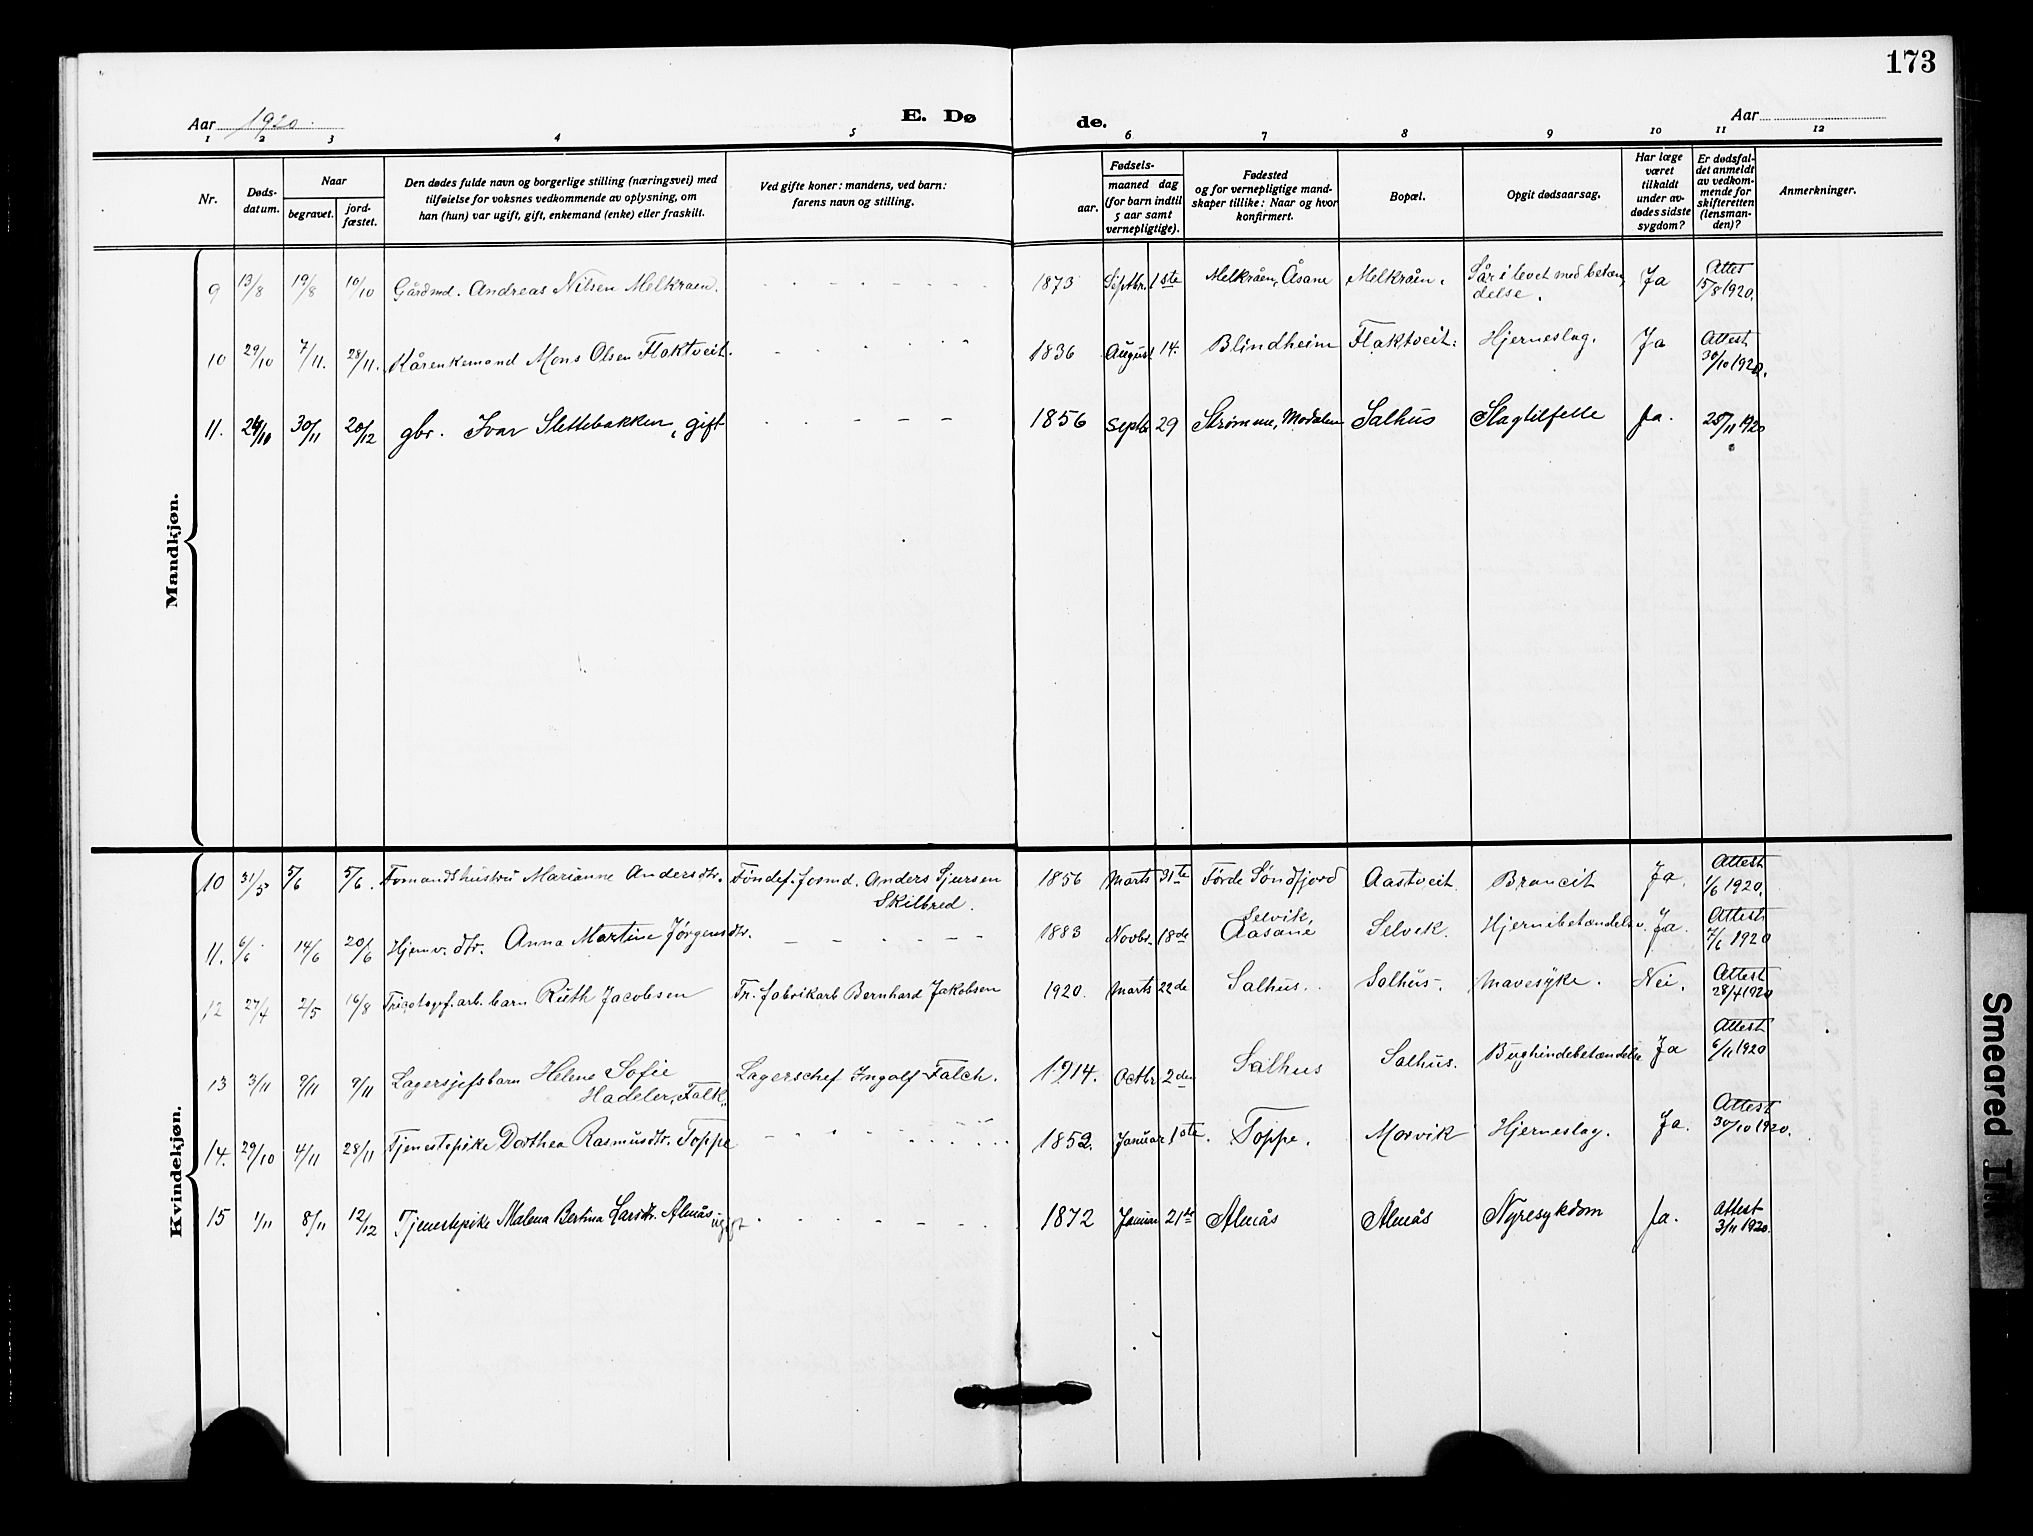 173
Aar 1920. E. Dø de. Aar
1 2 3 4 5 6 7 8 9 10 11 12
Nr. Døds-datum. Naar begravet. jord-fæstet. Den dødes fulde navn og borgerlige stilling (næringsvei) med tilføielse for voksnes vedkommende av oplysning, om han (hun) var ugift, gift, enkemand (enke) eller fraskilt. Ved gifte koner: mandens, ved barn: farens navn og stilling. Fødsels- aar. maaned dag (for barn indtil 5 aar samt vernepligtige). Fødested og for vernepligtige mand-skaper tillike: Naar og hvor konfirmert. Bopæl. Opgit dødsaarsag. Har læge været tilkaldt under av-dødes sidste sygdom? Er dødsfal-det anmeldt av vedkom-mende for skifteretten (lensman-den)? Anmerkninger.
Mandkjøn.
9 13/8 19/8 10/10 Gårdmd. Andreas Nilsen Melkraen. 1873 Septbr. 1ste Melkråen, Åsane Melkråen. Sår i levet med betæn-delse. Ja Attes 15/8 1920.
10 29/10 7/11. 28/11. Kårenkemand Mons Olsen Flaktveit. 1836 August 14. Blindheim Flaktveit. Hjerneslag. Ja Attest 30/10 1920.
11. 30/11 20/12 gbr. Ivar Slettebakken, gift 1856 Septb 29 Strømme, Modalen Salhus Slagtilfelle Ja. 25/11 1920
Kvindekjøn.
10 31/5 5/6 5/6. Formandshustru Marianne Andersdtr. Töndef. formd. Anders Sjursen Skilbred. 1856 Marts 31te Förde Søndfjord Aastveit. Broncit Ja. Attest 1/6 1920.
11. 6/6 14/6 20/6 Hjemv. dtr. Anna Martine Jørgensdtr. 1883 Novbr. 18de Selvik, Aasane Selvik. Hjernibetændelse. Ja. Attest 7/6 1920
12 27/4 2/5 16/8 Tricotagf. arb. barn Ruth Jacobsen Tr. fabrikarb Bernhard Jakobsen 1920. Marts 22de Salhus. Salhus. Mavesyke. Nei. Attest 28/4 1920
13 3/11 9/11 9/11 Lagersjefsbarn Helene Sofie Hadeler, Falk. Lagerschef Ingolf Falch. 1914. Octbr 2den Salhus Salhus. Bughindebetændelse Ja Attest 6/11 1920
14. 29/10 4/11 28/11 Tjenestepike Dorthea Rasmusdtr. Toppe 1852. Januar 1ste. Toppe. Morvik Hjerneslag. Ja. Attest 30/10 1920.
15 1/11 8/11 12/12 Tjenestepike Malena Bertina Larsdtr. Almås ugift 1872 Januar 21de Almås Almås Nyresykdom Ja. Attest 3/11 1920.
Smeared